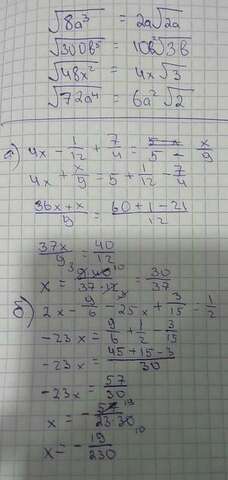 √8a³ = 2a√2a
√300b⁵ = 10b²√3b
√48x² = 4x√3
√72a⁴ = 6a²√2
а) 4x - 1/12 + 7/4 = 5 - x/9
4x + x/9 = 5 + 1/12 - 7/4
(36x + x)/9 = (60 + 1 - 21)/12
37x/9 = 40/12
x = 9·40/37·12 = 30/37
б) 2x - 9/6 - 25x + 3/15 = 1/2
-23x = 9/6 + 1/2 - 3/15
-23x = (45 + 15 - 3)/30
-23x = 57/30
x = - 57/23·30
x = - 19/230